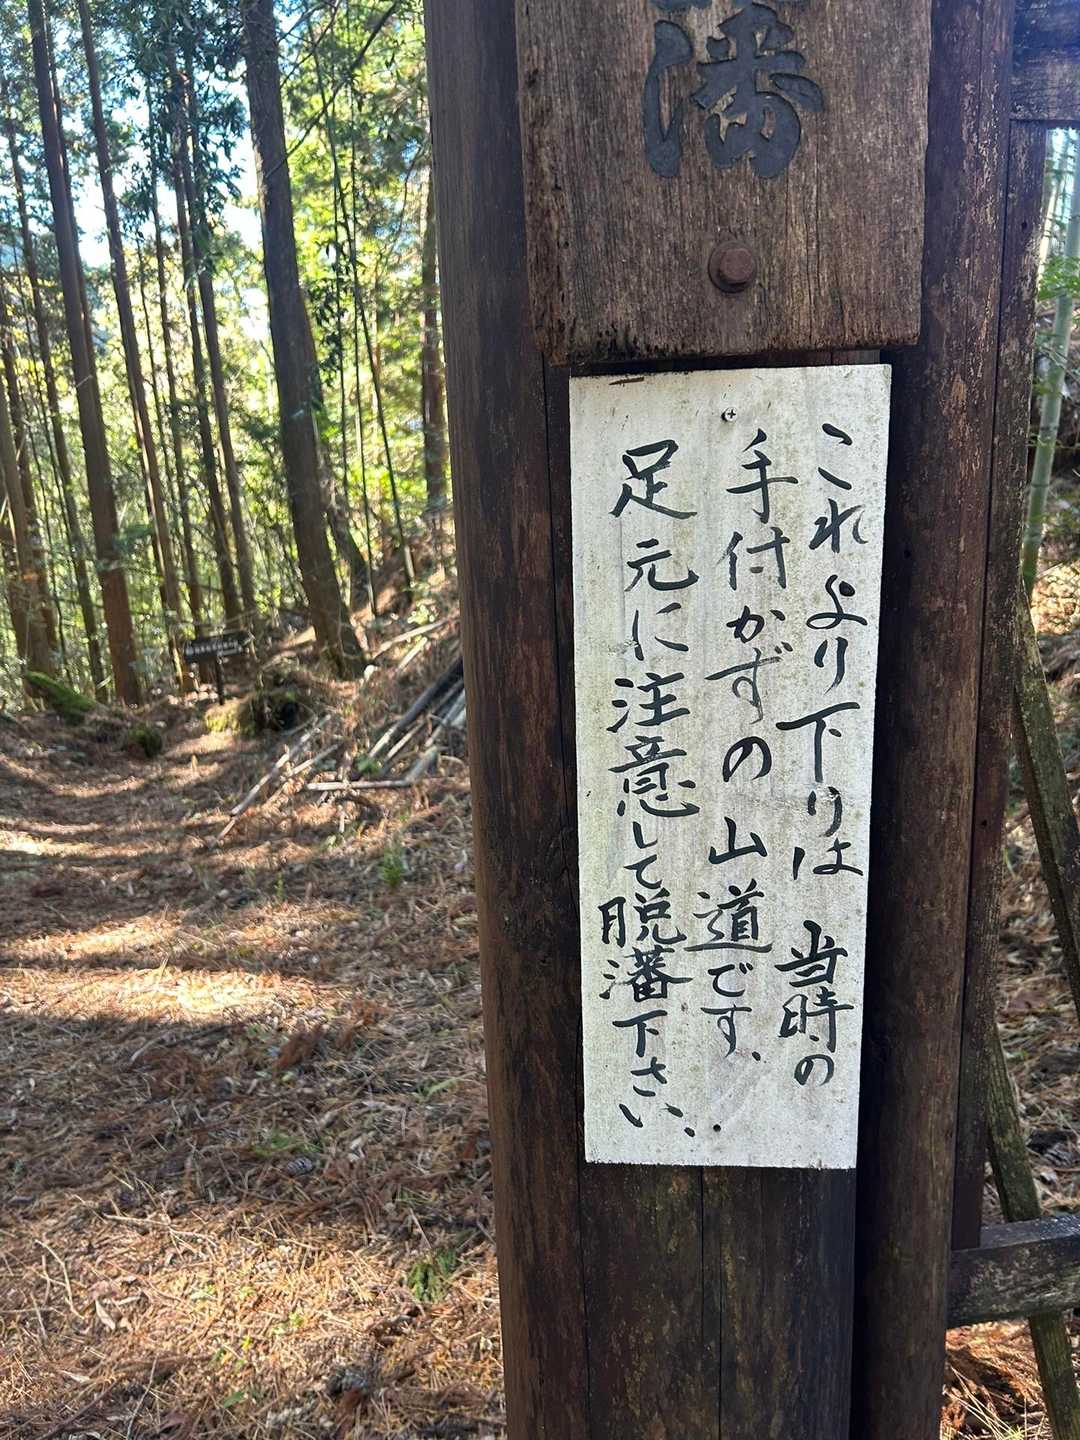 藩
これより下りは 当時の
手付かずの山道です、
足元に注意して脱藩下さい、